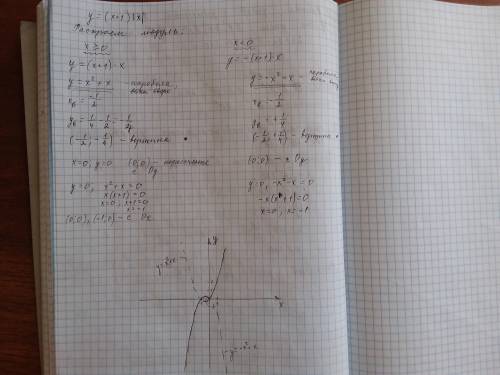 y = (x+1)|x|
Раскроем модуль.
x ≥ 0
y = (x+1)·x
y = x² + x - парабола,
ветви вверх
xв = -1/2
yв = 1/4 - 1/2 = -1/4
(-1/2; -1/4) - вершина
x=0, y=0 (0;0) - пересечение
с Oy
y=0, x²+x=0
x(x+1)=0
x=0; x+1=0
x=-1
(0;0), (-1;0) - с Ox
x < 0
y = -(x+1)·x
y = -x² - x - парабола
ветви вниз
xв = -1/2
yв = +1/4
(-1/2; +1/4) - вершина
(0;0) - с Oy
y=0, -x²-x=0
-x(x+1)=0
x=0; x=-1
y
y=x²+x
x
y=-x²-x